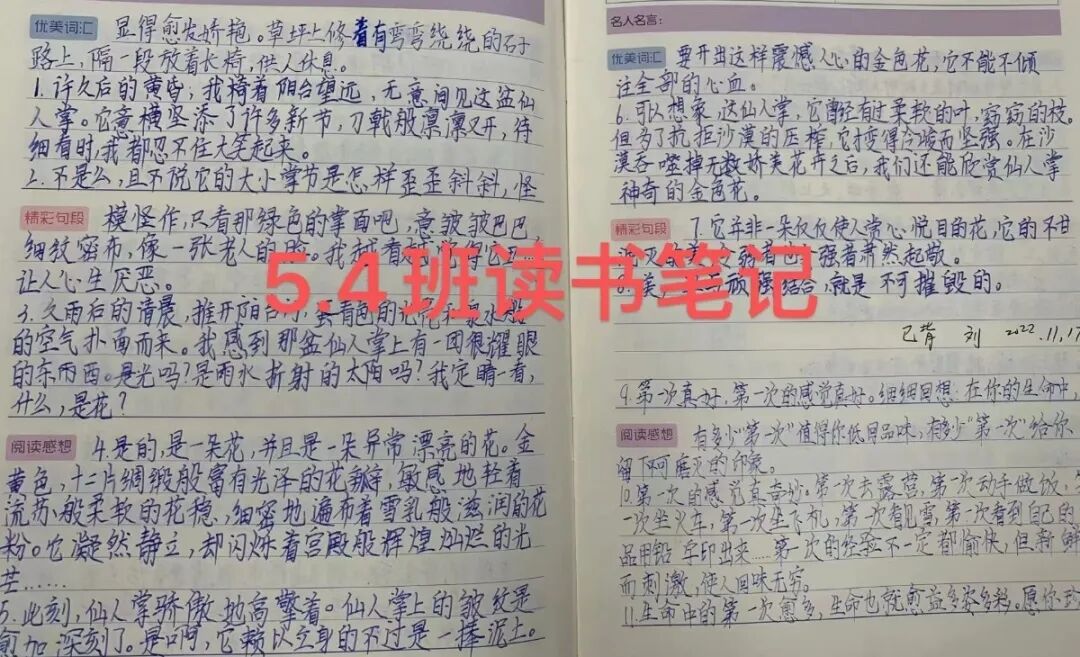 优美词汇 显得愈发娇艳。草坪上修着有弯弯绕绕的石子
路上，隔一段放着长椅，供人休息。
1. 许久后的黄昏，我倚着阳台望远，无意间见这盆仙
人掌。它竟横竖添了许多新节，刀戟般凛凛叉开，待
细看时，我都忍不住大笔起来。
2. 不是么，且不说它的大小掌节是怎样歪歪斜斜，怪
精彩句段 模怪作，只看那绿色的掌面吧，竟皱皱巴巴
细纹密布，像一张老人的脸。我越看越觉得它
让人心生厌恶。
3. 久雨后的清晨，推开阳台 青色的 泉水般
的空气扑面而来。我感到那盆仙人掌上有一团很耀眼
的东西。是光吗？是雨水折射的太阳吗？我定睛一看，
什么，是花？
阅读感想 4. 是的，是一朵花，并且是一朵异常漂亮的花。金
黄色，十二片绸缎般富有光泽的花瓣，敏感地轻着
流苏般柔软的花穗，细密地遍布着雪乳般滋润的花
粉。它凝然静立，却闪烁着宫殿般辉煌灿烂的光
芒……
5. 此刻，仙人掌骄傲地高擎着。仙人掌上的皱纹是
愈加深刻了。是啊，它赖以立身的不过是一捧泥土。
5.4班读书笔记
名人名言：
优美词汇 要开出这样震憾人心的金色花，它不能不倾
注全部的心血。
6. 可以想象，这仙人掌，它曾经有过柔软的叶，窈窈的枝。
但多了抗拒沙漠的压榨，它变得冷峻而坚强。在沙
漠吞噬掉无数娇美花卉之后，我们还能欣赏仙人掌
神奇的金色花。
精彩句段 7. 它并非一朵仅仅使人赏心悦目的花，它的不甘
泯灭的美 弱者也 强者肃然起敬。
8. 美 与顽强结合，就是不可摧毁的。
已背 刘 2022.11.17
9. 第一次真好，第一次的感觉真好。细细回想：在你的生命中，
阅读感想 有多少“第一次”值得你低回品味，有多少“第一次”给你
留下阿磨灭的印象。
10. 第一次的感觉真奇妙。第一次去露营，第一次动手做饭，
一次坐火车，第一次坐飞机，第一次看见雪，第一次看到自己的
品用铅字印出来……第一次的经验不一定都愉快，但新鲜
而刺激，使人回味无穷。
11. 生命中的第一次愈多，生命也就愈益多姿多彩。愿你